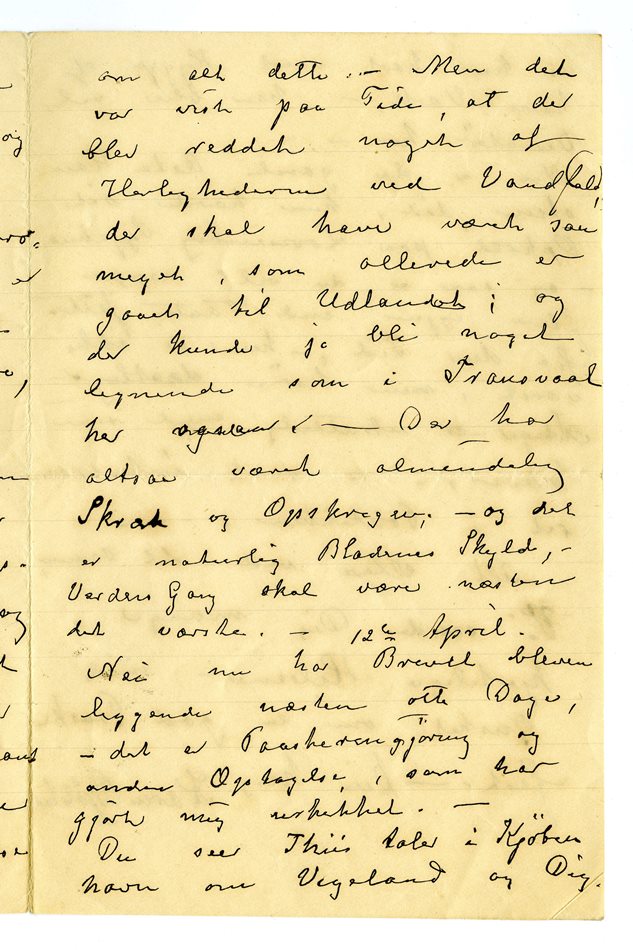 om alt dette. — Men det
var vist paa Tide, at der
blev reddet noget af
Herlighederne ved Vandfald,
der skal have været saa
meget, som allerede er
gaaet til Udlandet; og
der kunde jo bli noget
lignende som i Transvaal
her ogsaa. — Der har
altsaa været almindelig
Skræk og Opskrigen; — og det
er naturlig Bladenes Skyld, —
Verdens Gang skal være næsten
det værste. — 12te April.
Nei nu har Brevet bleven
liggende næsten otte Dage,
— det er Paaskerengjøring og
anden Optagelse, som har
gjort mig
Du seer Thiis taler i Kjøben
havn om Vigeland og Dig.